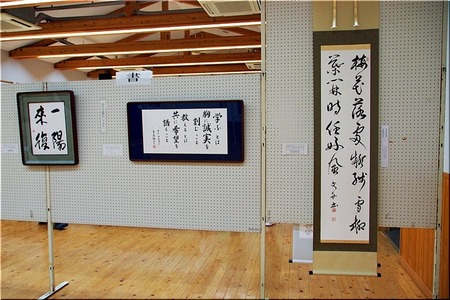 書
一陽
來復
学ぶとは
胸に誠実を
刻むこと
教えるとは
共に希望を
語ること
梅花落處疑残雪柳
葉開時任好風